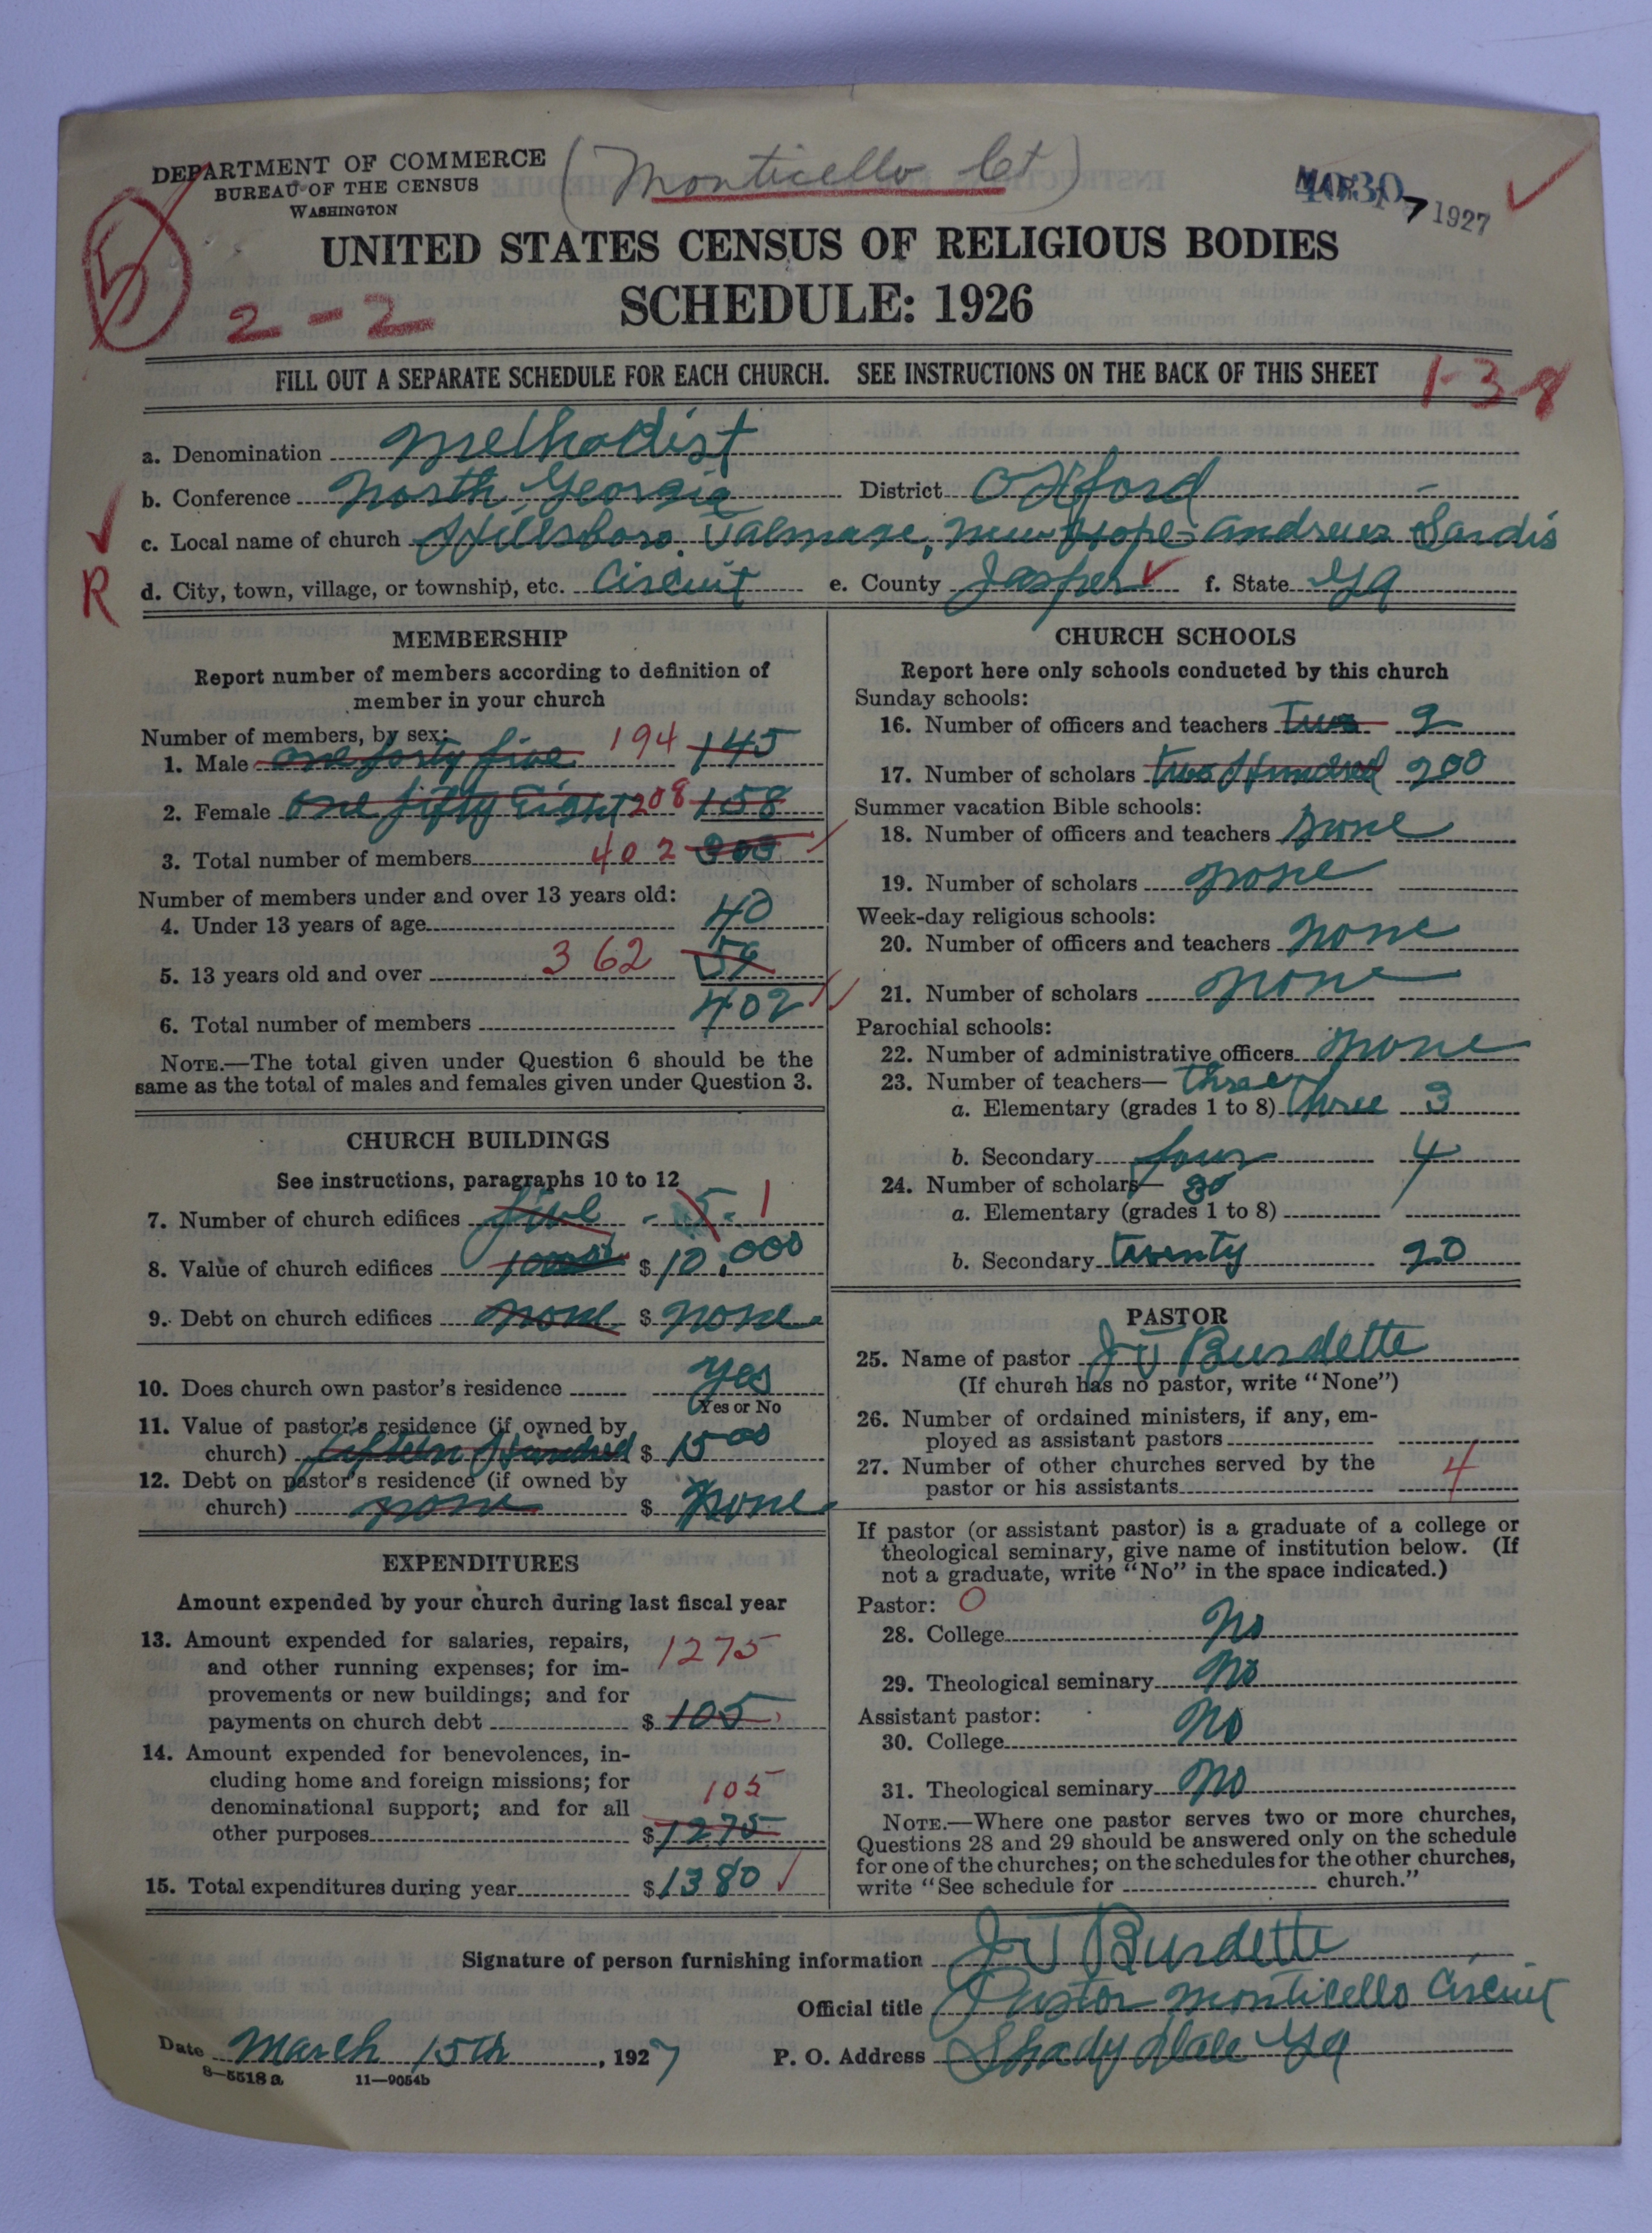 DEPARTMENT OF COMMERCE
BUREAU OF THE CENSUS
WASHINGTON
(Monticello Ct)
MAR 1927
5
2-2
UNITED STATES CENSUS OF RELIGIOUS BODIES
SCHEDULE: 1926
FILL OUT A SEPARATE SCHEDULE FOR EACH CHURCH. SEE INSTRUCTIONS ON THE BACK OF THIS SHEET
1-3-8
a. Denomination Methodist
b. Conference North Georgia District Oxford
c. Local name of church Hillsboro, Talmage, New Hope Andrews Sardis
R d. City, town, village, or township, etc. Circuit e. County Jasper f. State Ga
MEMBERSHIP
Report number of members according to definition of
member in your church
Number of members, by sex:
1. Male one forty five 194 145
2. Female one fifty Eight 208 158
3. Total number of members 402 303
Number of members under and over 13 years old:
4. Under 13 years of age 40
5. 13 years old and over 362
6. Total number of members 402
NOTE.—The total given under Question 6 should be the
same as the total of males and females given under Question 3.
CHURCH BUILDINGS
See instructions, paragraphs 10 to 12
7. Number of church edifices five - 5. 1
8. Value of church edifices $10,000
9. Debt on church edifices none $ none
10. Does church own pastor's residence yes
Yes or No
11. Value of pastor's residence (if owned by
church) fifteen Hundred $ 1500
12. Debt on pastor's residence (if owned by
church) none $ none
EXPENDITURES
Amount expended by your church during last fiscal year
13. Amount expended for salaries, repairs,
and other running expenses; for im-
provements or new buildings; and for
payments on church debt 1275 $ 105
14. Amount expended for benevolences, in-
cluding home and foreign missions; for
denominational support; and for all
other purposes 105 $ 1275
15. Total expenditures during year $ 1380
CHURCH SCHOOLS
Report here only schools conducted by this church
Sunday schools:
16. Number of officers and teachers Two 2
17. Number of scholars two Hundred 200
Summer vacation Bible schools:
18. Number of officers and teachers none
19. Number of scholars none
Week-day religious schools:
20. Number of officers and teachers none
21. Number of scholars none
Parochial schools:
22. Number of administrative officers none
23. Number of teachers— three
a. Elementary (grades 1 to 8) three 3
b. Secondary four 4
24. Number of scholars—
a. Elementary (grades 1 to 8)
b. Secondary twenty 20
PASTOR
25. Name of pastor J T Burdette
(If church has no pastor, write "None")
26. Number of ordained ministers, if any, em-
ployed as assistant pastors
27. Number of other churches served by the
pastor or his assistants 4
If pastor (or assistant pastor) is a graduate of a college or
theological seminary, give name of institution below. (If
not a graduate, write "No" in the space indicated.)
Pastor: O
28. College No
29. Theological seminary No
Assistant pastor:
30. College No
31. Theological seminary No
NOTE.—Where one pastor serves two or more churches,
Questions 28 and 29 should be answered only on the schedule
for one of the churches; on the schedules for the other churches,
write "See schedule for church."
Signature of person furnishing information J T Burdette
Official title Pastor Monticello Circuit
Date March 15th, 1927 P. O. Address Shady Dale Ga
8—5518a 11—9054b